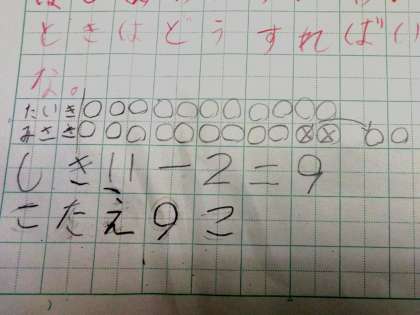 ときはどうすればい
な。
たいき○○○○○○○○○○○
みさき○○○○○○○○○⊗⊗ ○○
しき11－2＝9
こたえ9こ